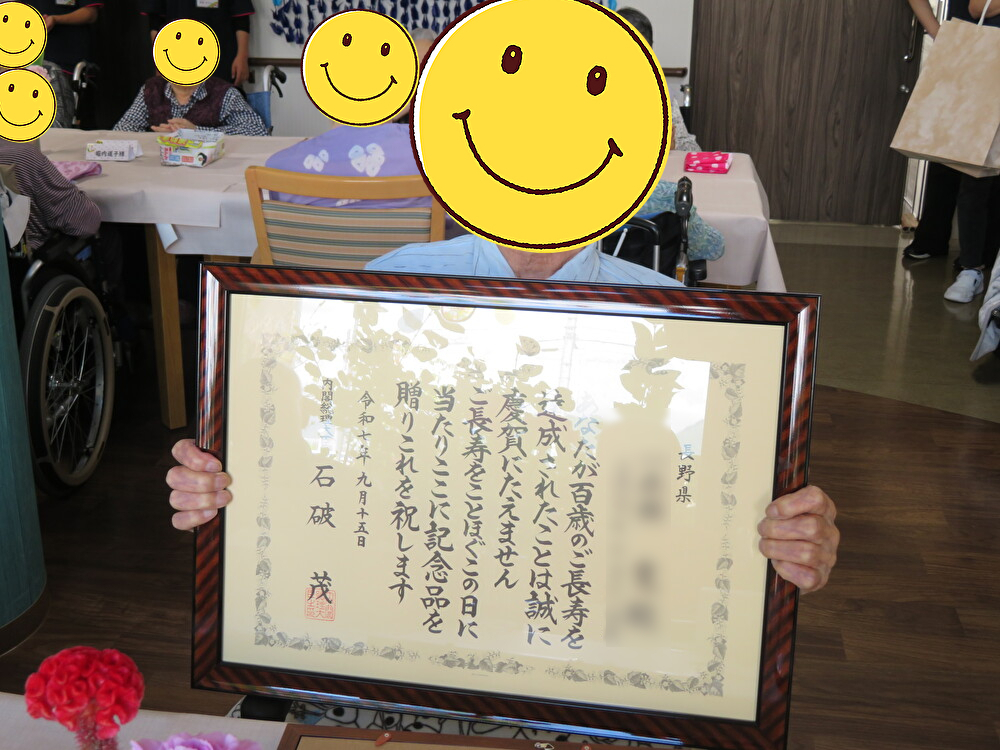 長野県
あなたが百歳のご長寿を
達成されたことは誠に
慶賀にたえません
ご長寿をことほぐこの日に
当たりここに記念品を
贈りこれを祝します
令和七年九月十五日
内閣総理大臣
石破 茂